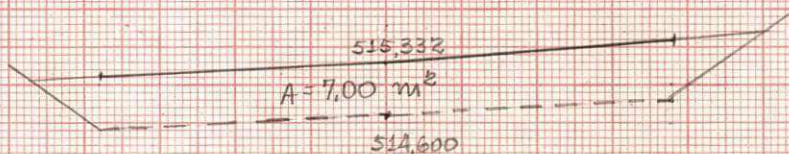 515,332
A = 7,00 m²
514,600